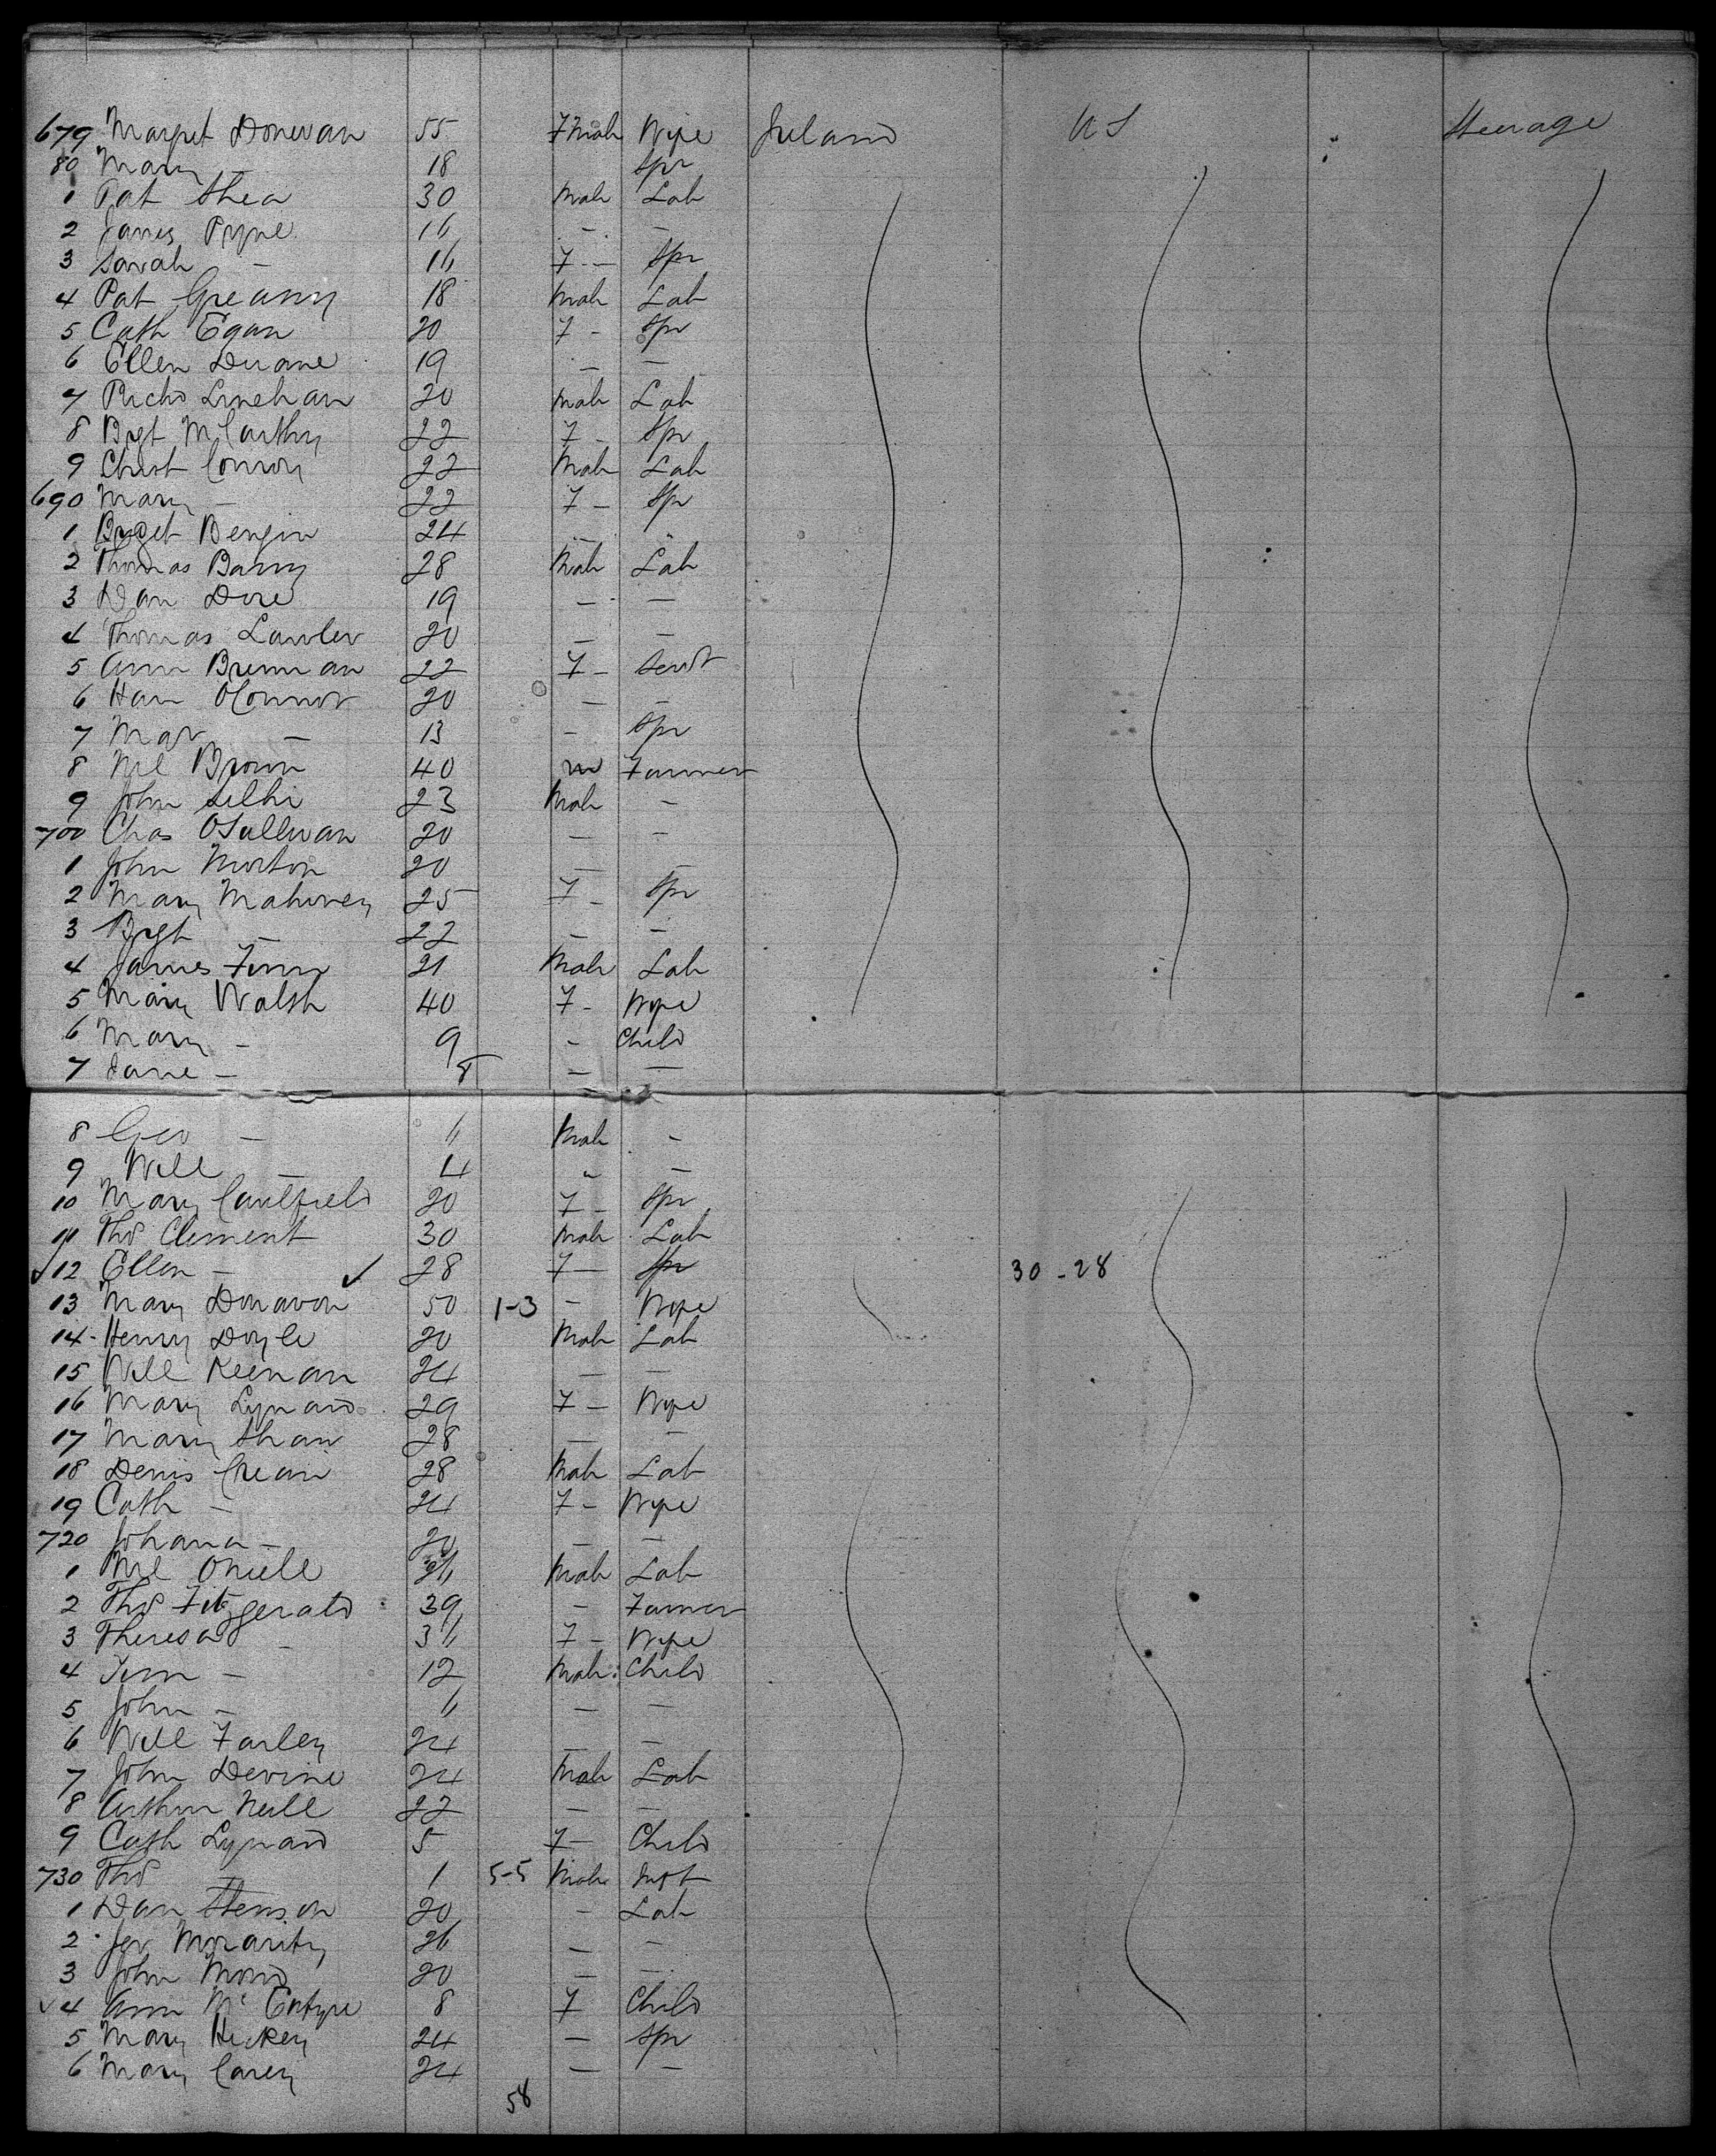 679 Margret Donevan 55 Fmale Wife Ireland US Steerage
80 Mary — 18 Spr
1 Pat Shea 30 Male Lab
2 James Pyne 16 — —
3 Sarah — 16 F — Spr
4 Pat Greany 18 Male Lab
5 Cath Egan 20 F — Spr
6 Ellen Duane 19 — —
7 Richd Linehan 20 Male Lab
8 Bgt McCarthy 22 F — Spr
9 Christ Conroy 22 Male Lab
690 Mary — 22 F — Spr
1 Bridget Bengin 24 — "
2 Thomas Barry 28 Male Lab
3 Dan Dore 19 — —
4 Thomas Lawler 20 — —
5 Ann Brennan 22 F — Servt
6 Han OConnor 20 — —
7 Mar — 13 — Spr
8 Ml Brown 40 m Farmer
9 John 23 Male —
700 Chas OSullivan 20 — —
1 John Morton 20 — —
2 Mary Mahoney 25 F — Spr
3 Bgt — 22 — —
4 James Finn 21 Male Lab
5 Mary Walsh 40 F — Wife
6 Mary — 9 — Child
7 Jane — 8 — —
8 Geo — 6 Male —
9 Will — 4 " —
10 Mary Caulfield 20 F — Spr
11 Thos Clement 30 Male Lab
12 Ellen — 28 F — Spr 30-28
13 Mary Donavon 50 1-3 — Wife
14 Henry Doyle 20 Male Lab
15 Will Keenan 24 — —
16 Mary Lynard 29 F — Wife
17 Mary Shaw 28 — —
18 Denis Crean 28 Male Lab
19 Cath — 24 F — Wife
720 Johana — 20 — —
1 Ml ONeill 26 Male Lab
2 Thos Fitzgerald 39 — Farmer
3 Theresa — 36 F — Wife
4 Tim — 12 Male Child
5 John — 6 — —
6 Will Farley 24 — —
7 John Devine 24 Male Lab
8 Arthur Neill 22 — —
9 Cath Lynard 5 F — Child
730 Thos — 1 5-5 Male Inft
1 Dan Stenson 20 — Lab
2 Jer Morarity 26 — —
3 John 20 — —
4 Ann McEntyre 8 F Child
5 Mary Hickey 24 — Spr
6 Mary Carey 24 — —
58